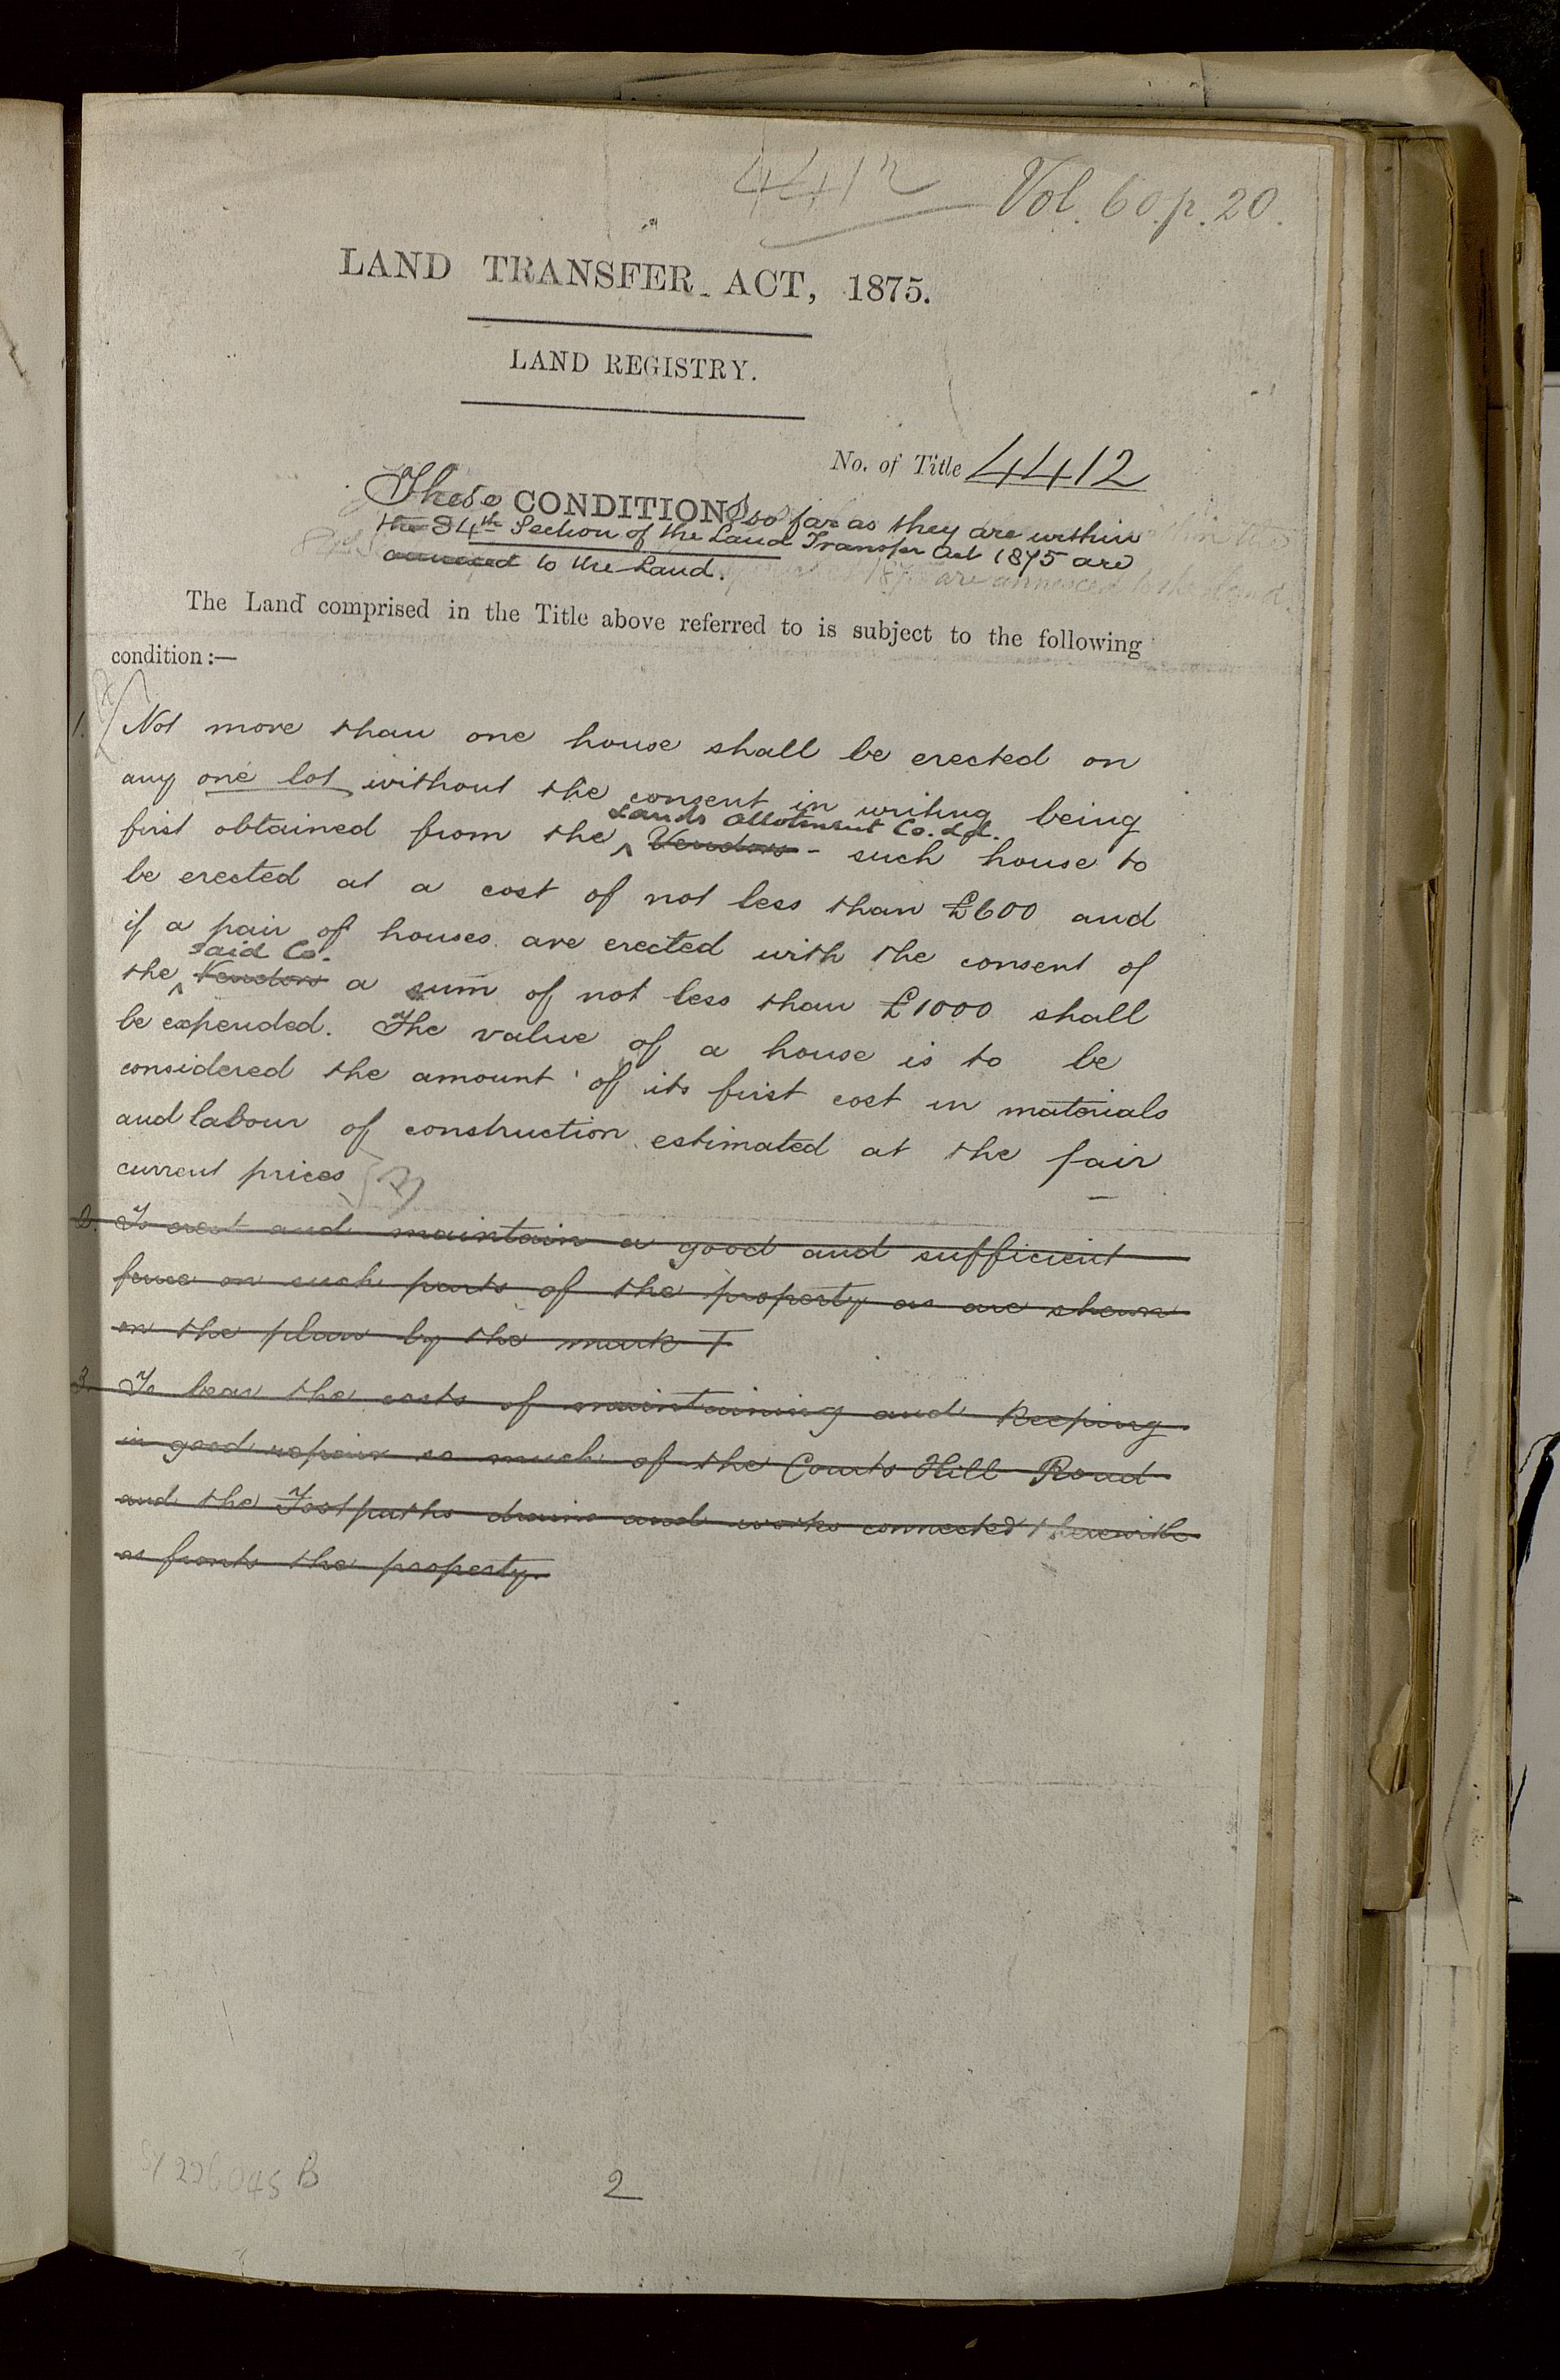 4412 Vol. 60. p. 20.
LAND TRANSFER ACT, 1875.
LAND REGISTRY.
No. of Title 4412
These CONDITIONS so far as they are within
the 84th Section of the Land Transfer Act 1875 are
annexed to the Land.
The Land comprised in the Title above referred to is subject to the following
condition:—
1. Not more than one house shall be erected on
any one lot without the consent in writing being
Lands Allotment Co. Ld.
first obtained from the Vendors - such house to
be erected at a cost of not less than £600 and
if a pair of houses are erected with the consent of
said Co.
the Vendors a sum of not less than £1000 shall
be expended. The value of a house is to be
considered the amount of its first cost in materials
and labour of construction estimated at the fair
current prices
2. To erect and maintain a good and sufficient
fence on such parts of the property as are shewn
on the plan by the mark T
3. To bear the costs of maintaining and keeping
in good repair so much of the Courts Hill Road
and the Footpaths drains and works connected therewith
as fronts the property.
SY 226045 B
2